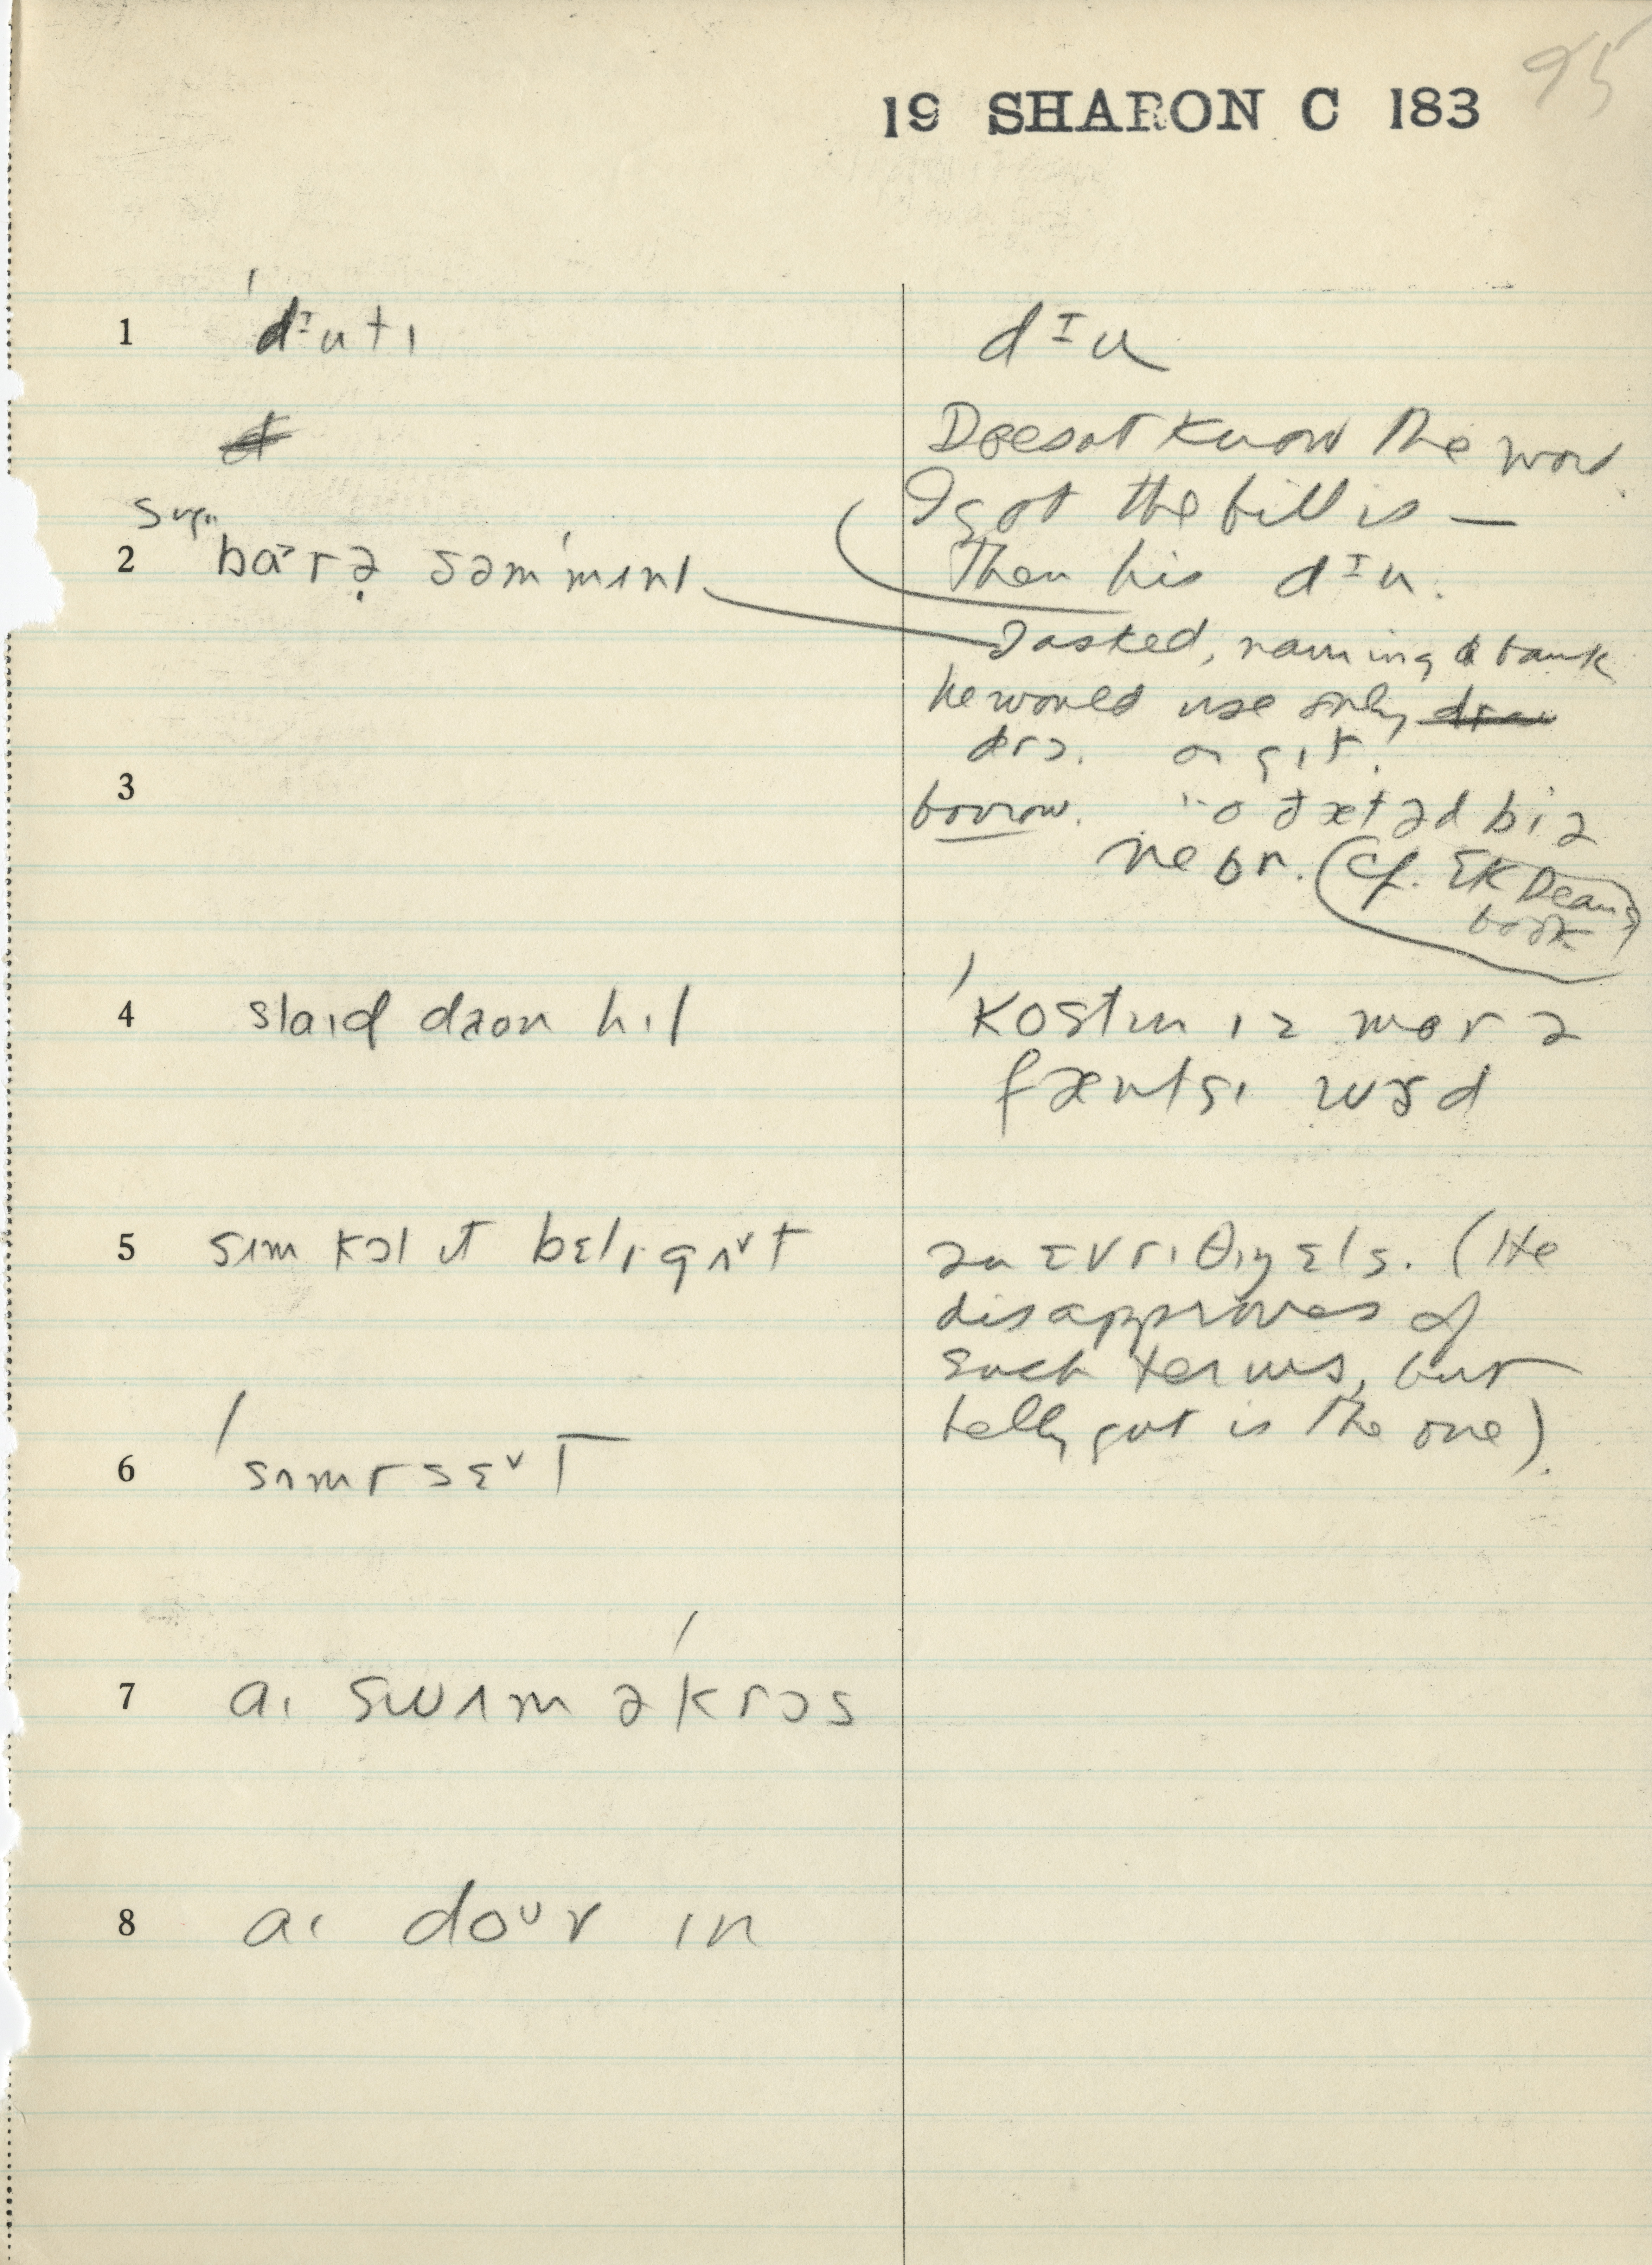 95
19 SHARON C 183
1 ˈdᶦutɪ
dᶦu
Doesnt know the word
I got the bill is —
2
səmˈmɪnt
Then his dᶦu.
I asked, naming a bank
he would use only
drɔ. or gɪt.
3
borrow.
nebr. (cf. EK Dean's
book)
4 slaɪd daon hɪl
ˈkostɪn ɪz mor ə
fæntsɪ wɝd
5 sɪm kɔl ɪt bɛlɪgʌᵛt
ən ɛvrɪθɪŋ ɛls. (He
disapproves of
such terms, but
belly gut is the one).
6 ˈsʌmrsɛᵛt
7 aɪ swʌm əˈkrɔs
8 aɪ doᵘv ɪn